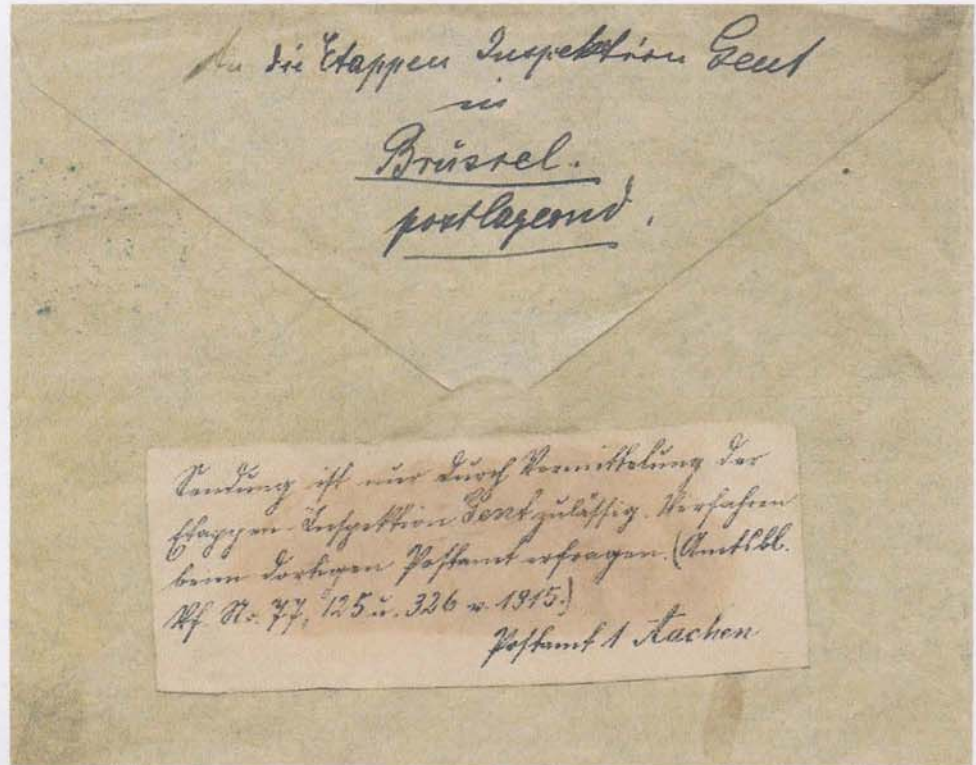 An die Etappen Inspektion Gent
in
Brüssel.
postlagernd.
Sendung ist nur durch Vermittelung der
Etappen-Inspektion Gent zulässig. Verfahren
beim dortigen Postamt erfragen. (Amtsbl.
Vf. Nr. 77, 125 u. 326 v. 1915.)
Postamt 1 Aachen